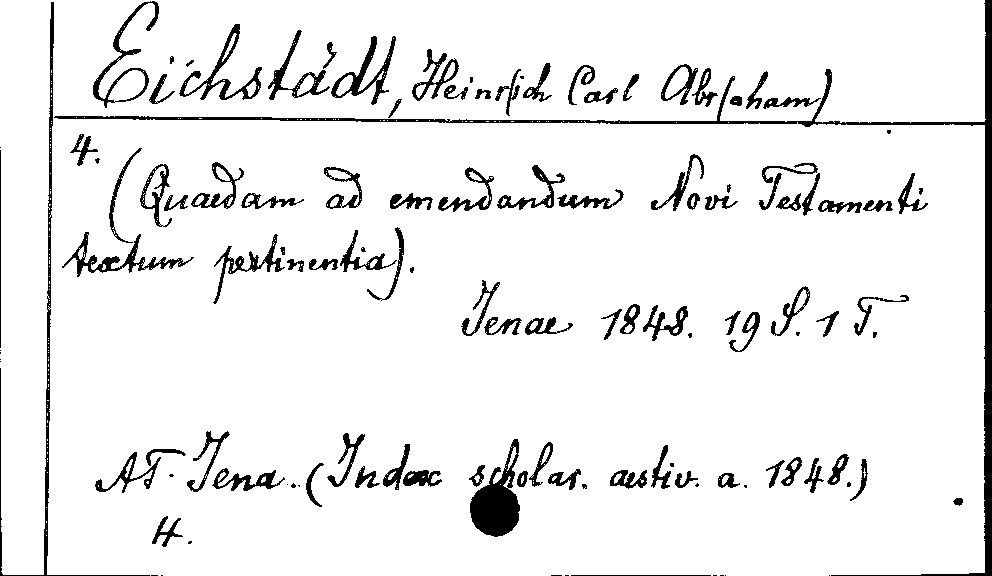 Eichstädt, Heinr(ich Carl Abr(aham)
4.
(Quaedam ad emendandum Novi Testamenti
textum pertinentia).
Jenae 1848. 19 S. 1 T.
AT. Jena. (Index scholar. aestiv. a. 1848.)
4.